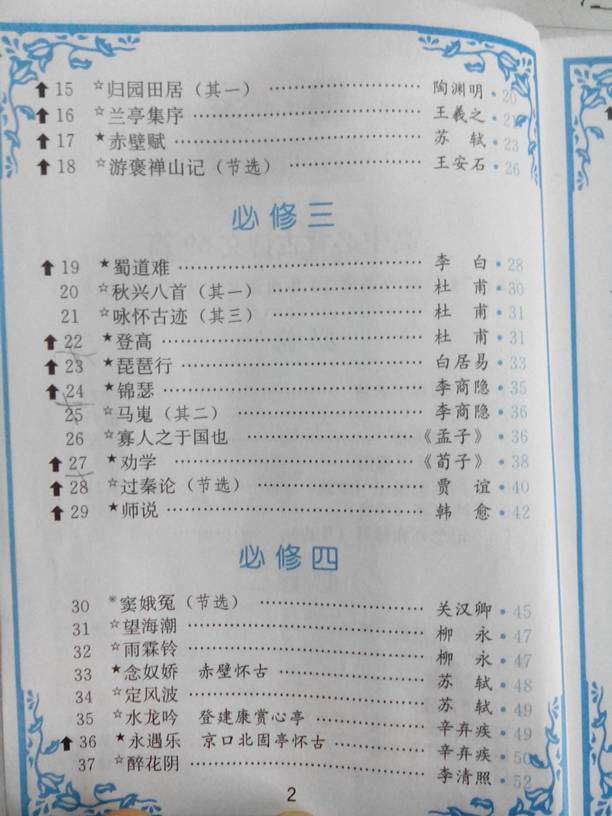 ⬆ 15 ☆归园田居（其一） ………… 陶渊明 • 20
⬆ 16 ☆兰亭集序 ………… 王羲之 • 21
⬆ 17 ★赤壁赋 ………… 苏 轼 • 23
⬆ 18 ☆游褒禅山记（节选） ………… 王安石 • 26
必修三
⬆ 19 ★蜀道难 ………… 李 白 • 28
20 ☆秋兴八首（其一） ………… 杜 甫 • 30
21 ☆咏怀古迹（其三） ………… 杜 甫 • 31
⬆ 22 ★登高 ………… 杜 甫 • 31
⬆ 23 ★琵琶行 ………… 白居易 • 33
⬆ 24 ★锦瑟 ………… 李商隐 • 35
25 ☆马嵬（其二） ………… 李商隐 • 36
26 ☆寡人之于国也 ………… 《孟子》 • 36
⬆ 27 ★劝学 ………… 《荀子》 • 38
⬆ 28 ☆过秦论（节选） ………… 贾 谊 • 40
⬆ 29 ★师说 ………… 韩 愈 • 42
必修四
30 *窦娥冤（节选） ………… 关汉卿 • 45
31 ☆望海潮 ………… 柳 永 • 47
32 ☆雨霖铃 ………… 柳 永 • 47
33 ★念奴娇 赤壁怀古 ………… 苏 轼 • 48
34 ☆定风波 ………… 苏 轼 • 49
35 ☆水龙吟 登建康赏心亭 ………… 辛弃疾 • 49
⬆ 36 ★永遇乐 京口北固亭怀古 ………… 辛弃疾 • 50
37 ☆醉花阴 ………… 李清照 • 52
2